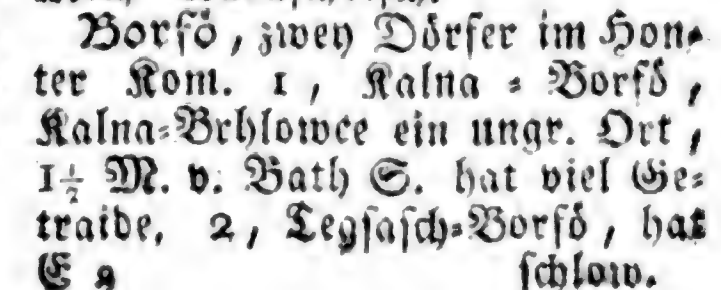 Borsö, zwey Dörfer im Hon-
ter Kom. 1, Kalna-Borsö,
Kalna-Brhlowce ein ungr. Ort,
1½ M. v. Bath S. hat viel Ge-
traide, 2, Tegsasch-Borsö, hat
schlow.